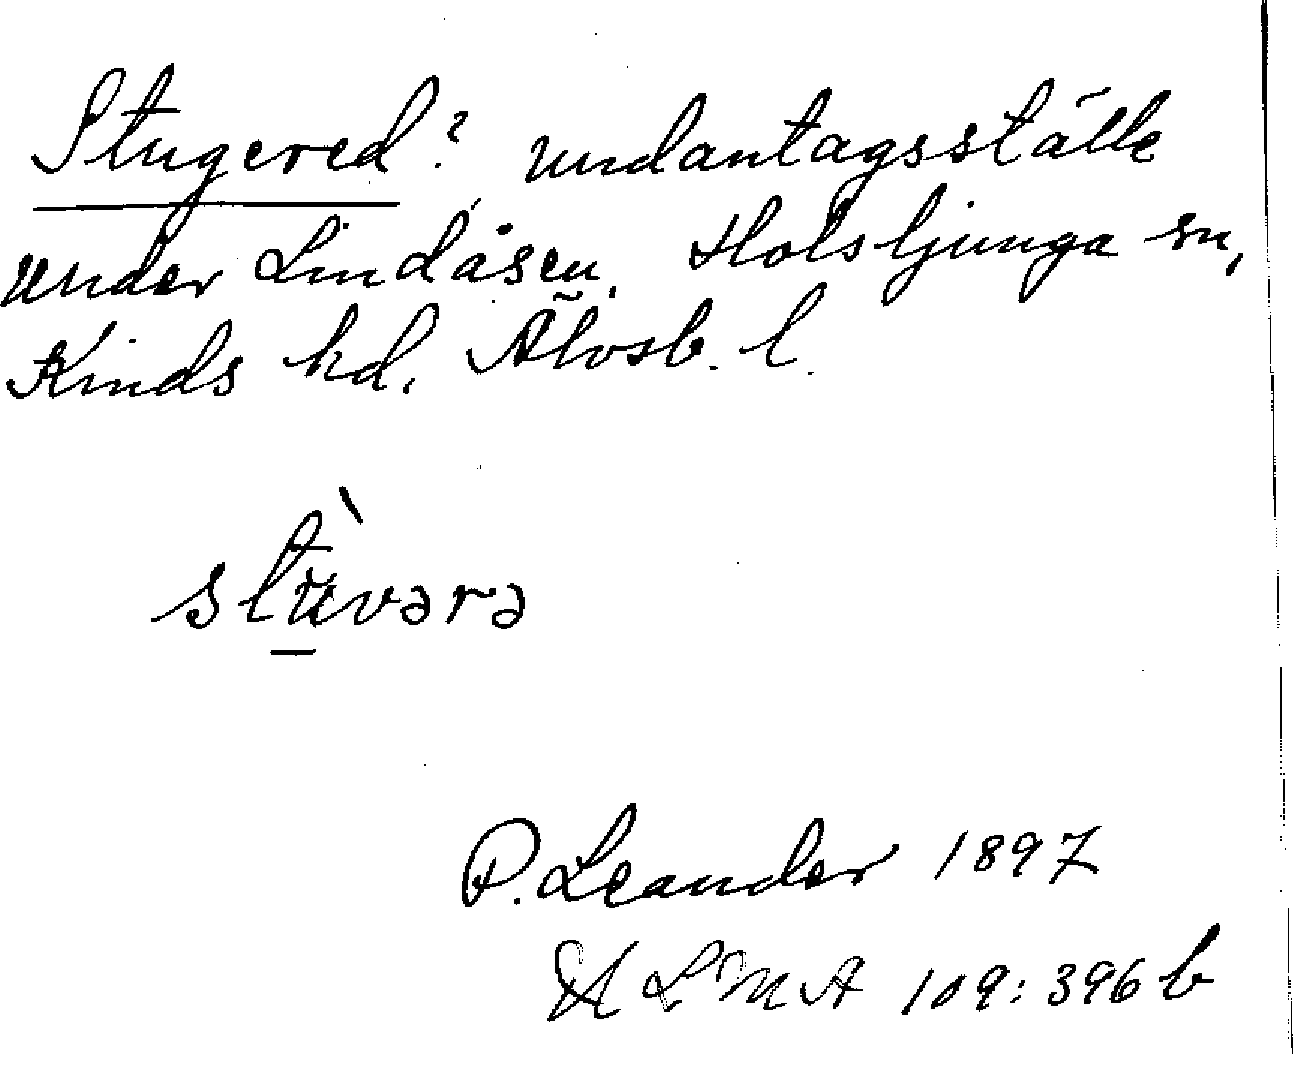 Stugered? undantagsställe
under Lindåsen, Holsljunga sn,
Kinds hd. Älvsb. l.
stùvərə
P. Leander 1897
ULMA 109:396 b